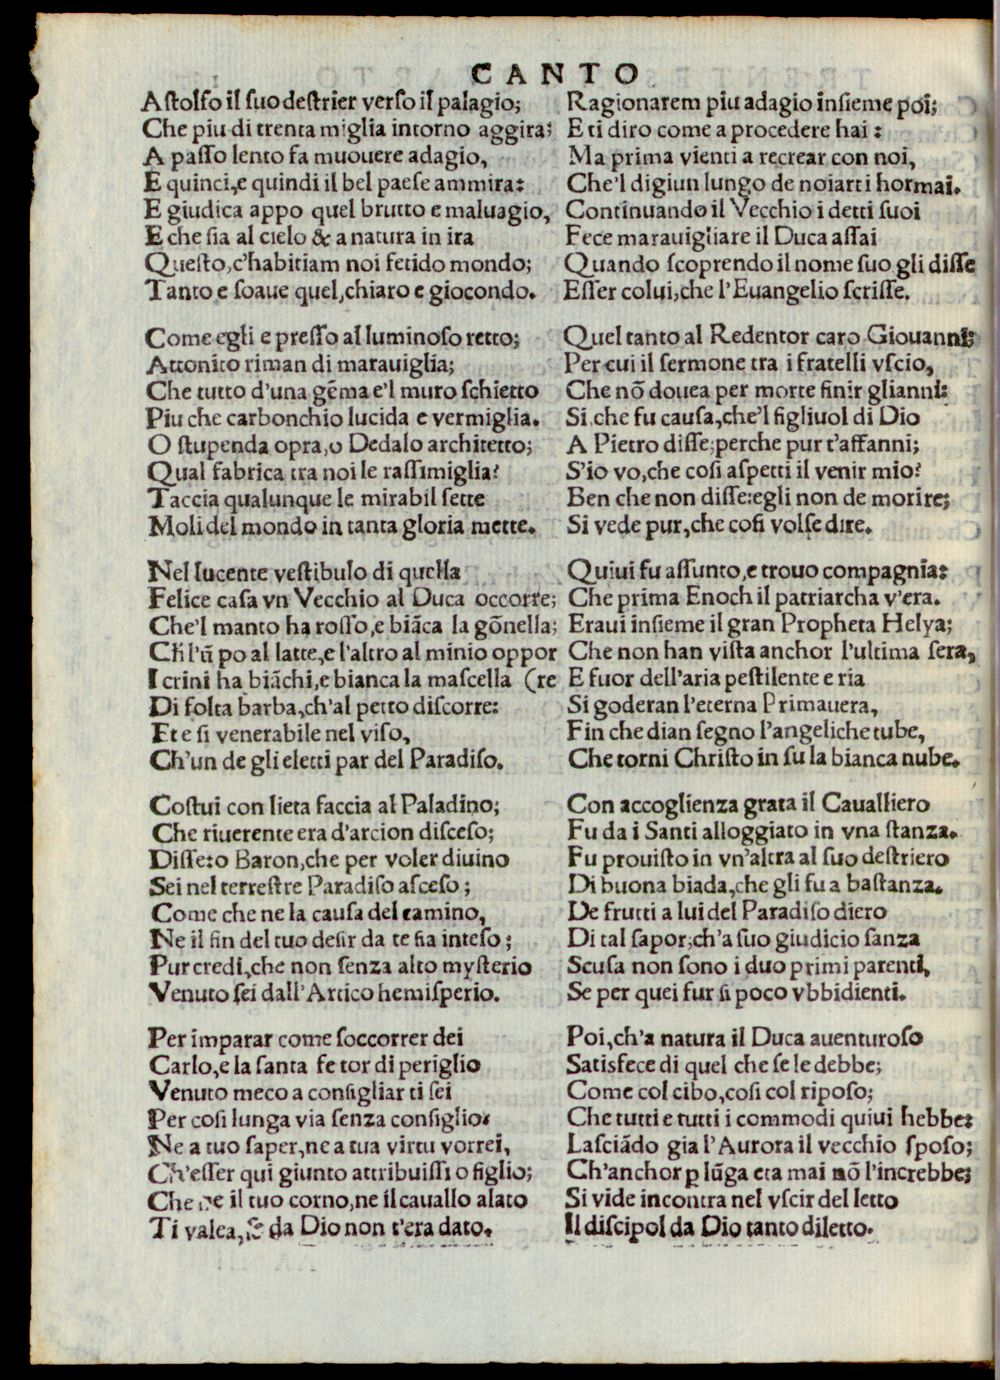 CANTO
Astolfo il suo destrier verso il palagio;
Che piu di trenta miglia intorno aggira;
A passo lento fa muouere adagio,
E quinci, e quindi il bel paese ammira:
E giudica appo quel brutto e maluagio,
E che sia al cielo & a natura in ira
Questo, c'habitiam noi fetido mondo;
Tanto e soaue quel, chiaro e giocondo.
Come egli e presso al luminoso tetto;
Attonito riman di marauiglia;
Che tutto d'una gēma e'l muro schietto
Piu che carbonchio lucida e vermiglia.
O stupenda opra, o Dedalo architetto;
Qual fabrica tra noi le rassimiglia?
Taccia qualunque le mirabil sette
Moli del mondo in tanta gloria mette.
Nel lucente vestibulo di quella
Felice casa vn Vecchio al Duca occorre;
Che'l manto ha rosso, e biāca la gōnella;
Ch l'ū po al latte, e l'altro al minio oppor
I crini ha biāchi, e bianca la mascella (re
Di folta barba, ch'al petto discorre:
Et e si venerabile nel viso,
Ch'un de gli eletti par del Paradiso.
Costui con lieta faccia al Paladino;
Che riuerente era d'arcion disceso;
Disse: o Baron, che per voler diuino
Sei nel terrestre Paradiso asceso;
Come che ne la causa del camino,
Ne il fin del tuo desir da te sia inteso;
Pur credi, che non senza alto mysterio
Venuto sei dall'Artico hemisperio.
Per imparar come soccorrer dei
Carlo, e la santa fe tor di periglio
Venuto meco a consigliar ti sei
Per cosi lunga via senza consiglio.
Ne a tuo saper, ne a tua virtu vorrei,
Ch'esser qui giunto attribuissi o figlio;
Che ne il tuo corno, ne il cauallo alato
Ti valea, se da Dio non t'era dato.
Ragionarem piu adagio insieme poi;
E ti diro come a procedere hai:
Ma prima vienti a recrear con noi,
Che'l digiun lungo de noiarti hormai.
Continuando il Vecchio i detti suoi
Fece marauigliare il Duca assai
Quando scoprendo il nome suo gli disse
Esser colui, che l'Euangelio scrisse.
Quel tanto al Redentor caro Giouanni;
Per cui il sermone tra i fratelli vscio,
Che nō douea per morte finir glianni:
Si che fu causa, che'l figliuol di Dio
A Pietro disse; perche pur t'affanni;
S'io vo, che cosi aspetti il venir mio?
Ben che non disse: egli non de morire;
Si vede pur, che cosi volse dire.
Quiui fu assunto, e trouo compagnia:
Che prima Enoch il patriarcha v'era.
Eraui insieme il gran Propheta Helya;
Che non han vista anchor l'ultima sera,
E fuor dell'aria pestilente e ria
Si goderan l'eterna Primauera,
Fin che dian segno l'angeliche tube,
Che torni Christo in su la bianca nube.
Con accoglienza grata il Caualliero
Fu da i Santi alloggiato in vna stanza.
Fu prouisto in vn'altra al suo destriero
Di buona biada, che gli fu a bastanza.
De frutti a lui del Paradiso diero
Di tal sapor, ch'a suo giudicio sanza
Scusa non sono i duo primi parenti,
Se per quei fur si poco vbbidienti.
Poi, ch'a natura il Duca auenturoso
Satisfece di quel che se le debbe;
Come col cibo, cosi col riposo;
Che tutti e tutti i commodi quiui hebbe:
Lasciādo gia l'Aurora il vecchio sposo;
Ch'anchor ꝑ lūga eta mai nō l'increbbe;
Si vide incontra nel vscir del letto
Il discipol da Dio tanto diletto.